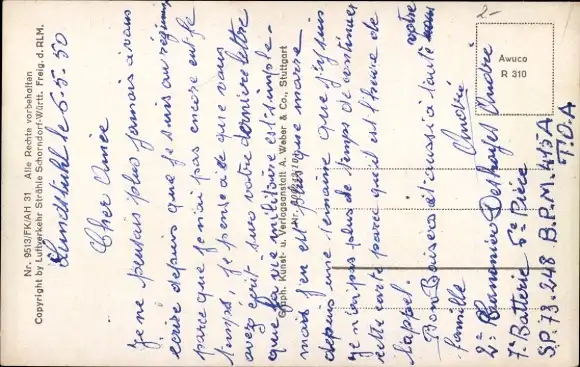 Nr. 9513/FK/AH 31 Alle Rechte vorbehalten
Copyright by Luftverkehr Strähle Schorndorf-Württ. Freig. d. RLM.
Landstuhl le 5.5.50
Cher Aimée
Je ne pensais plus jamais à vous
écrire depuis que je suis au régiment
parce que je n'ai pas encore eut le
temps, je pense à ce que vous
avez écrit sur votre dernière lettre
que la vie militaire est simple.
mais j'en est plus que marre
depuis une semaine que j'y suis
Je n'ai pas plus de temps de continuer
cette carte parce qu'il est l'heure de
l'appel.
Bon Baisers et aussi à toute votre
famille
André
2e Canonnier Deshayes André
7e Batterie 5e Pièce
S.P. 73.248 B.P.M. 445A
T.O.A
Graph. Kunst- u. Verlagsanstalt A. Weber & Co., Stuttgart
2-
Awuco
R 310